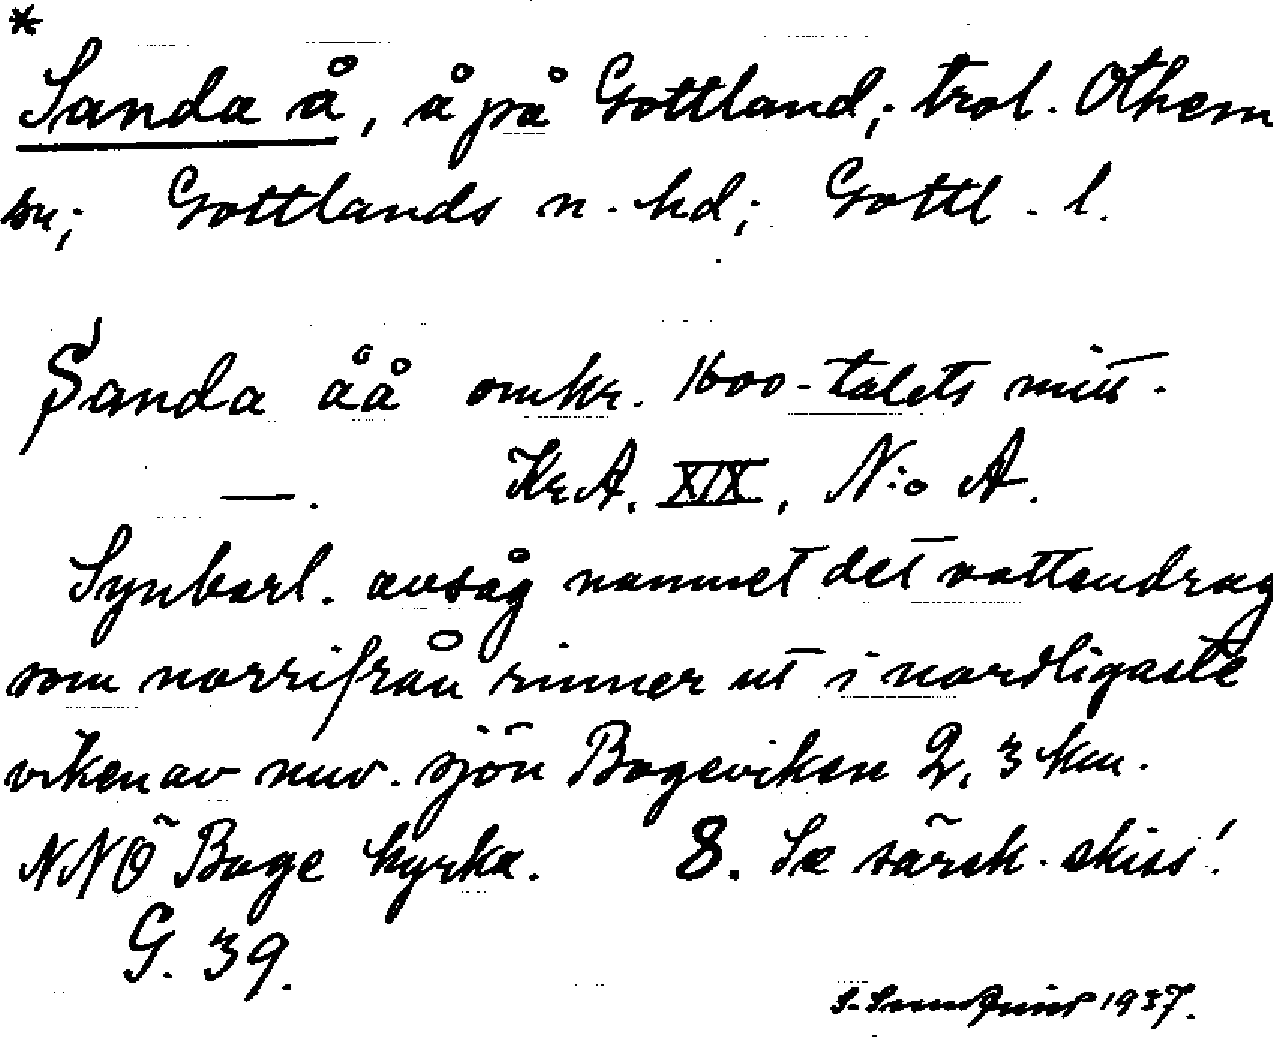 *
Sanda å, å på Gottland; trol. Othem
sn; Gottlands n. hd; Gottl. l.
Sanda åå omkr. 1600-talets mitt.
—. Kr.A. XIX, N:o A.
Synbarl. avsåg namnet det vattendrag
som norrifrån rinner ut i nordligaste
viken av nuv. sjön Bogeviken 2,3 km.
NNÖ Boge kyrka. 8. Se särsk. skiss!
G. 39.
1937.